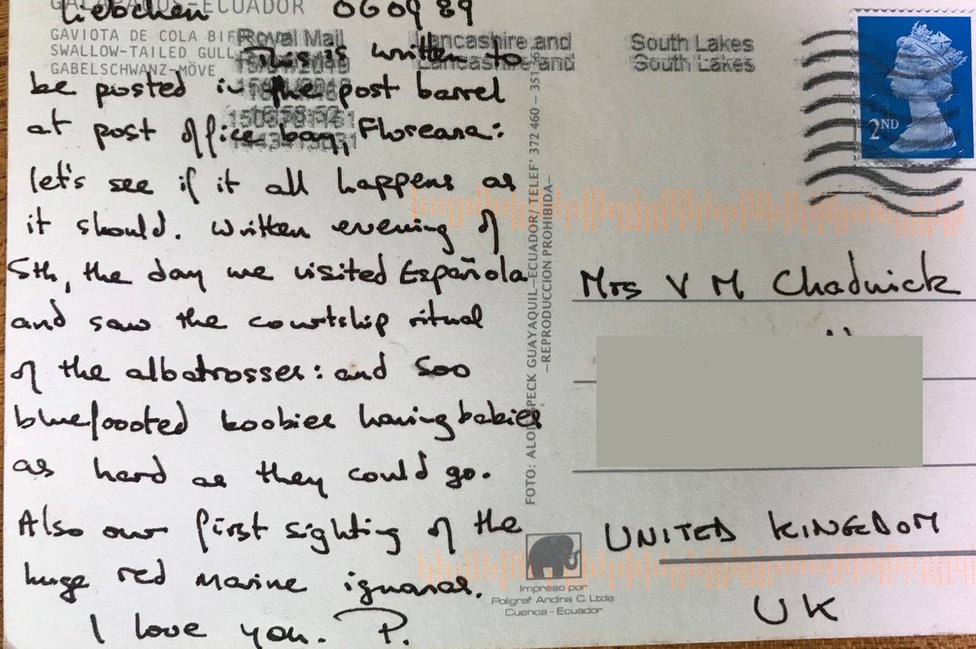 GALAPAGOS-ECUADOR
Liebchen 060989
GAVIOTA DE COLA
SWALLOW-TAILED GULL
GABELSCHWANZ-MÖVE
Royal Mail
Lancashire and
South Lakes
Lancashire and
South Lakes
2ND
This is written to
be posted in the post barrel
at post office bay, Floreana:
let's see if it all happens as
it should. Written evening of
5th, the day we visited Española
and saw the courtship ritual
of the albatrosses: and 500
bluefooted boobies having babies
as hard as they could go.
Also our first sighting of the
huge red marine iguanas.
I love you. P.
GUAYAQUIL-ECUADOR/ TELEF' 372 460 –
–REPRODUCCION PROHIBIDA–
Mrs V M Chadwick
UNITED KINGDOM
UK
Impreso por
Poligraf Andina C. Ltda
Cuenca - Ecuador